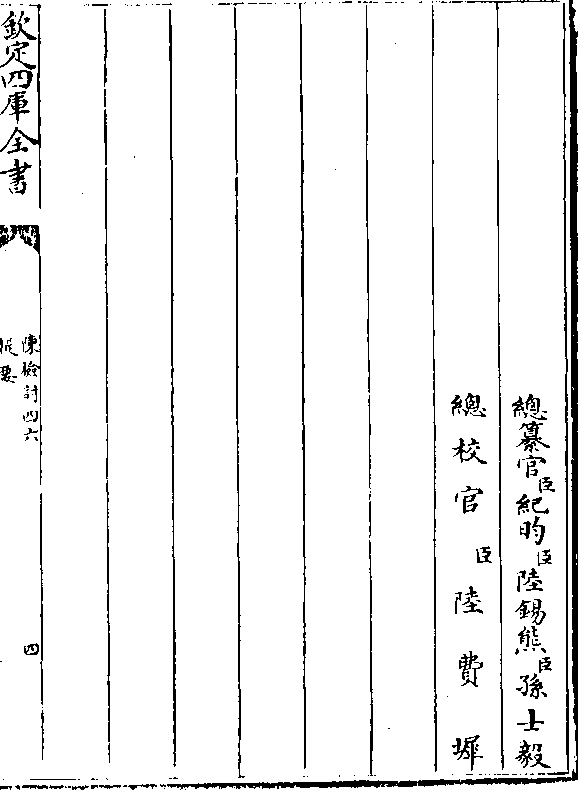 總纂官臣紀昀臣陸錫熊臣孫士毅
總校官臣陸費墀
欽定四庫全書
陳檢討四六
提要
四